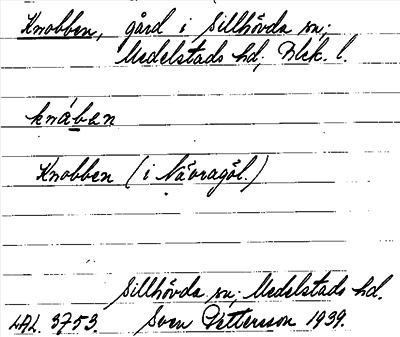 Knobben, gård i Sillhövda sn;
Medelstads hd; Blek. l.
knåban
Knobben (i Nävragöl.)
Sillhövda sn; Medelstads hd.
LAL. 3753. Sven Pettersson 1939.